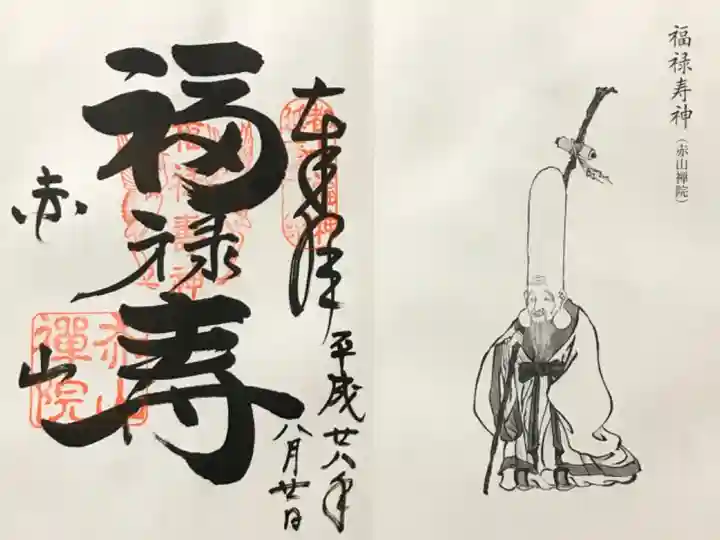 福禄寿神(赤山禅院)
奉拝
平成廿八年
八月廿日
福禄寿
赤山
赤山
禪院